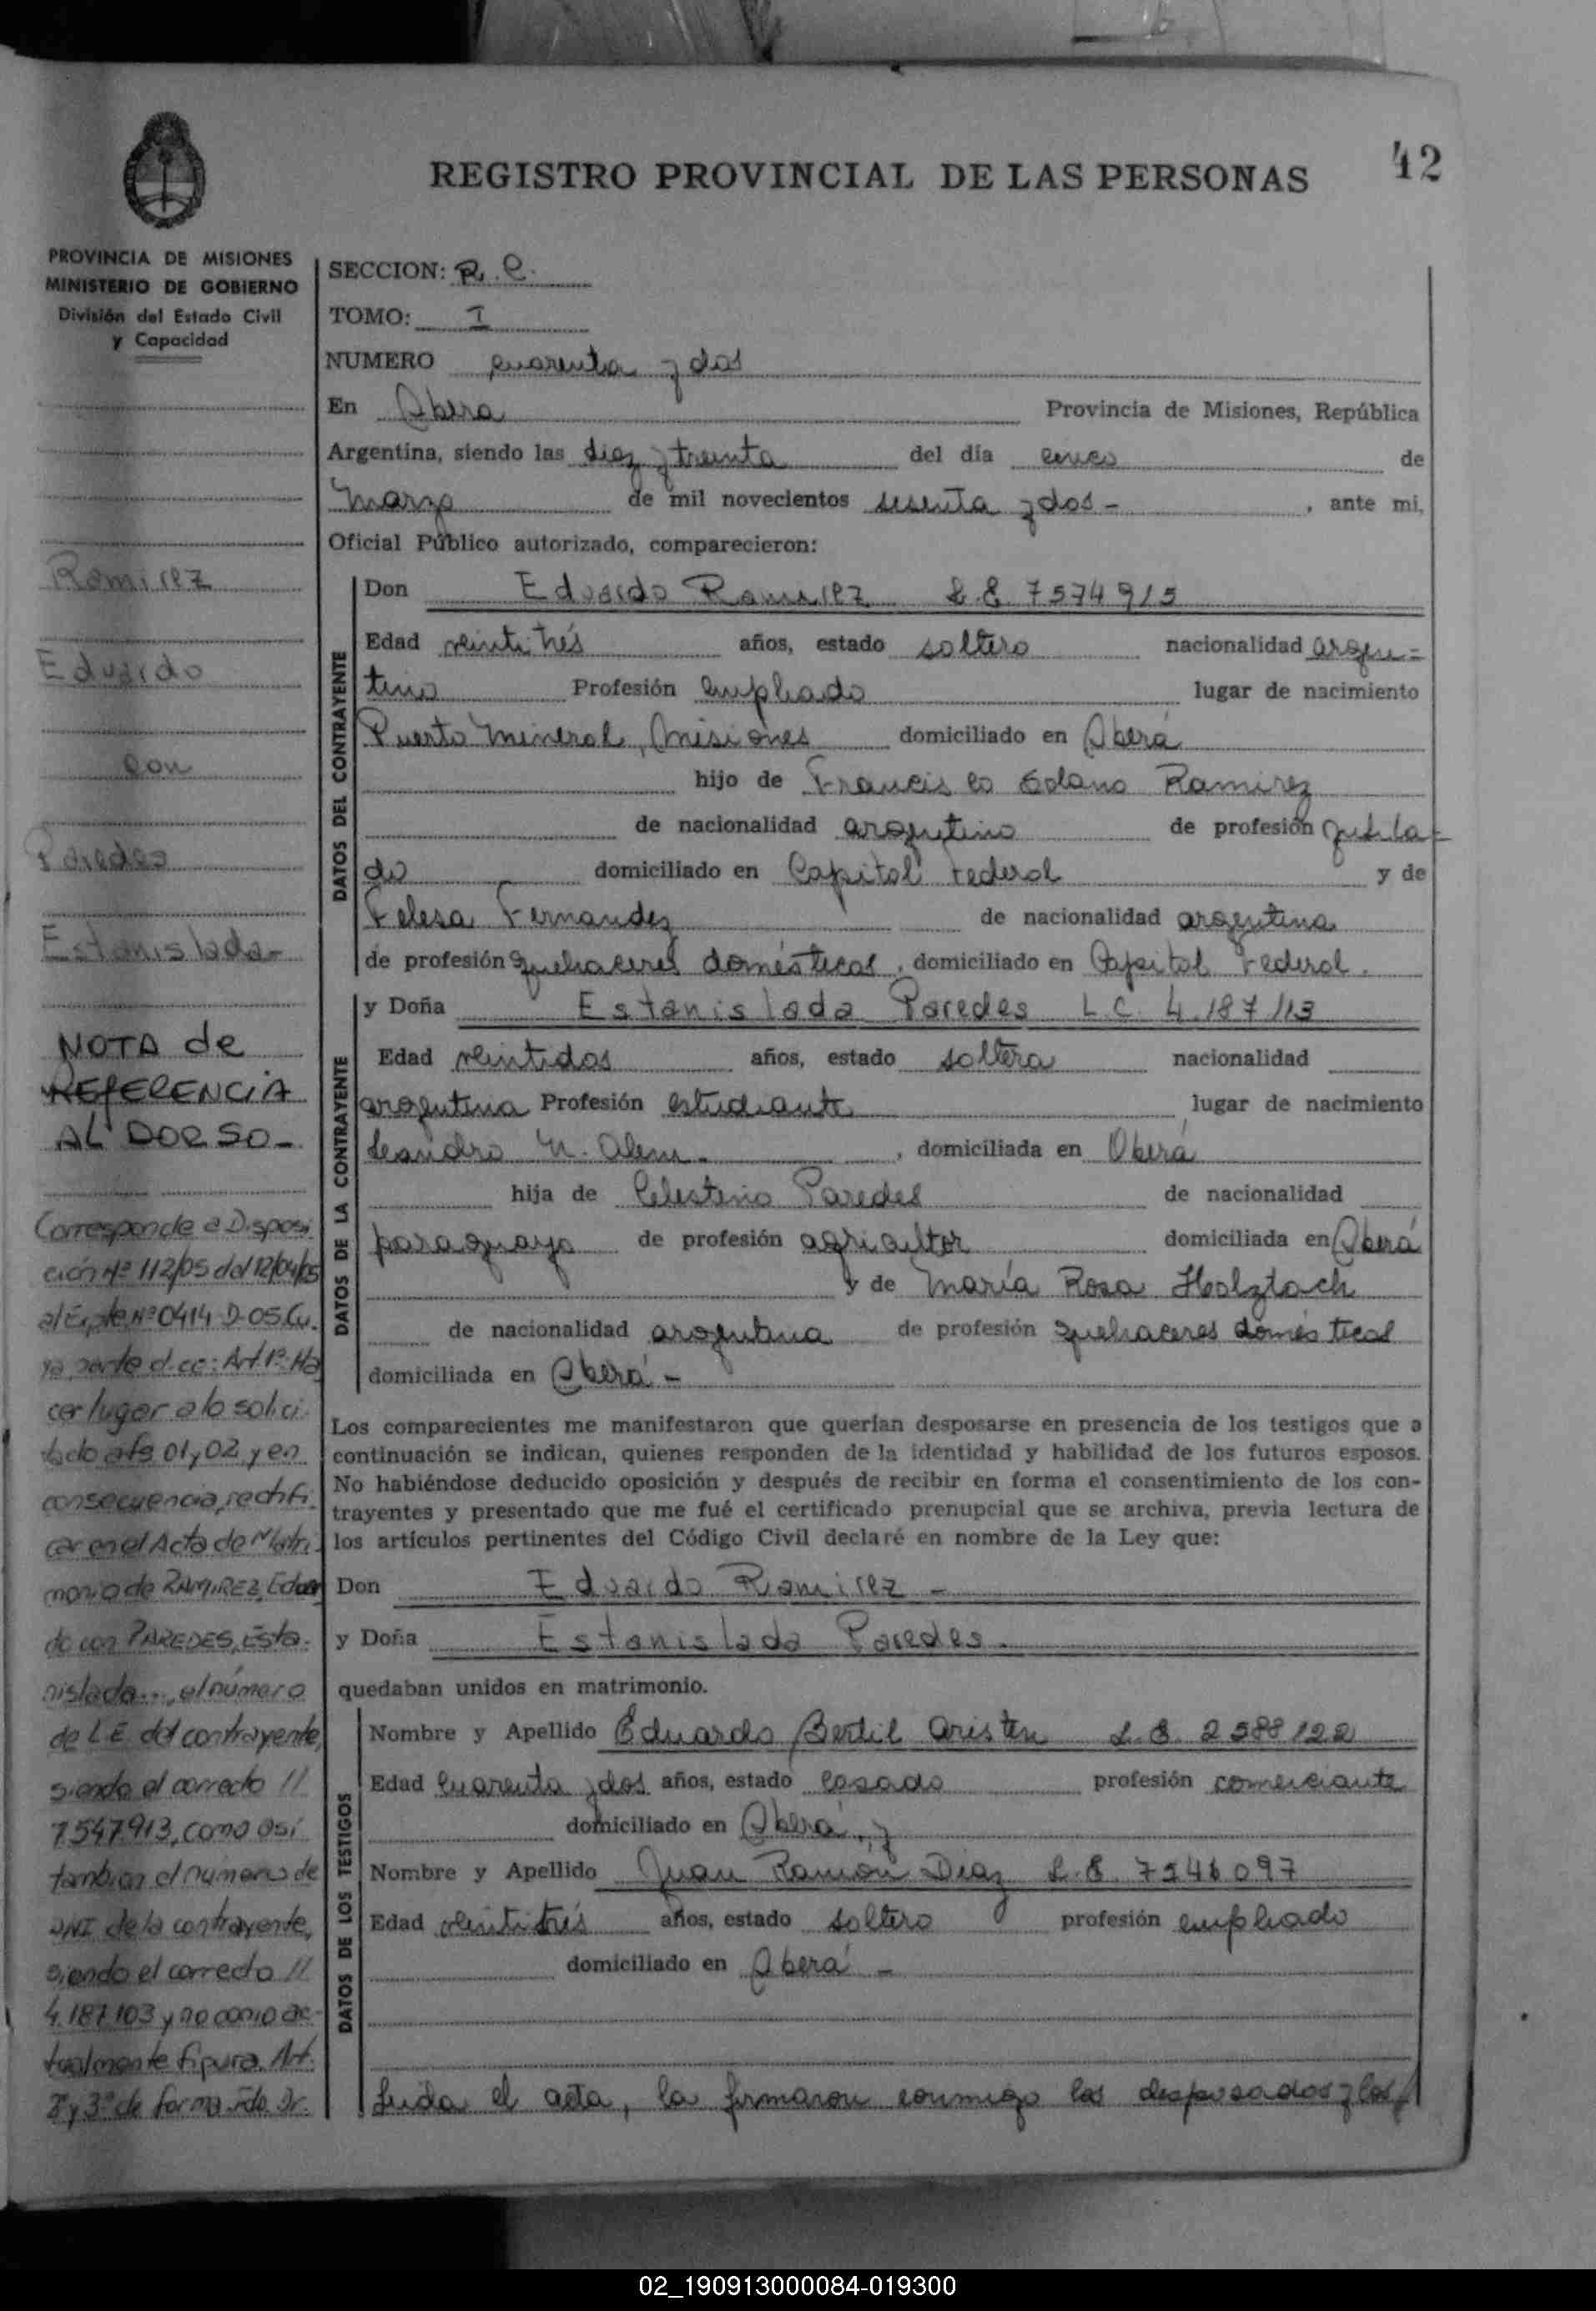 42
REGISTRO PROVINCIAL DE LAS PERSONAS
PROVINCIA DE MISIONES
MINISTERIO DE GOBIERNO
División del Estado Civil
y Capacidad
Ramirez
Eduardo
con
Paredes
Estanislada-
NOTA de
REFERENCIA
AL DORSO-
Corresponde a Disposi
ción Nº 112/05 del 12/04/05
al Expte Nº 0414-D-05. Cu
ya parte dice: Art 1º: Ha
cer lugar a lo solici
tado a fs 01 y 02 y en
consecuencia, rectifi
car en el Acta de Matri
monio de RAMIREZ, Eduar
do con PAREDES, Esta
nislada..., el número
de L.E. del contrayente,
siendo el correcto //
7.547.913, como asi
tambien el numero de
DNI de la contrayente,
siendo el correcto //
4.187.103 y no como ac-
tualmente figura. Art.
2º y 3º de forma. Fdo. Dr.
SECCION: R. C.
TOMO: I
NUMERO cuarenta y dos
En Obera Provincia de Misiones, República
Argentina, siendo las diez y treinta del día cinco de
Marzo de mil novecientos sesenta y dos - , ante mi,
Oficial Público autorizado, comparecieron:
DATOS DEL CONTRAYENTE
Don Eduardo Ramirez L.E 7574915
Edad veintitrés años, estado soltero nacionalidad argen-
tino Profesión empleado lugar de nacimiento
Puerto Mineral, Misiones domiciliado en Oberá
hijo de Francisco Solano Ramirez
de nacionalidad argentino de profesión jubila-
do domiciliado en Capital Federal y de
Felesa Fernandez de nacionalidad argentina
de profesión quehaceres domésticos, domiciliado en Capital Federal.
DATOS DE LA CONTRAYENTE
y Doña Estanislada Paredes L.C. 4.187113
Edad veintidos años, estado soltera nacionalidad
argentina Profesión estudiante lugar de nacimiento
Leandro N. Alem. , domiciliada en Oberá
hija de Celestino Paredes de nacionalidad
paraguayo de profesión agricultor domiciliada en Oberá
y de María Rosa Holztach
de nacionalidad argentina de profesión quehaceres domésticos
domiciliada en Oberá -
Los comparecientes me manifestaron que querían desposarse en presencia de los testigos que a
continuación se indican, quienes responden de la identidad y habilidad de los futuros esposos.
No habiéndose deducido oposición y después de recibir en forma el consentimiento de los con-
trayentes y presentado que me fué el certificado prenupcial que se archiva, previa lectura de
los artículos pertinentes del Código Civil declaré en nombre de la Ley que:
Don Eduardo Ramirez -
y Doña Estanislada Paredes.
quedaban unidos en matrimonio.
DATOS DE LOS TESTIGOS
Nombre y Apellido Eduardo Bertil Aristen L.E. 2588122
Edad Cuarenta y dos años, estado casado profesión comerciante
domiciliado en Oberá, y
Nombre y Apellido Juan Ramón Diaz L.E. 7546097
Edad veintitrés años, estado soltero profesión empleado
domiciliado en Oberá -
Leida el acta, la firmaron conmigo los desposados y los
02_190913000084-019300